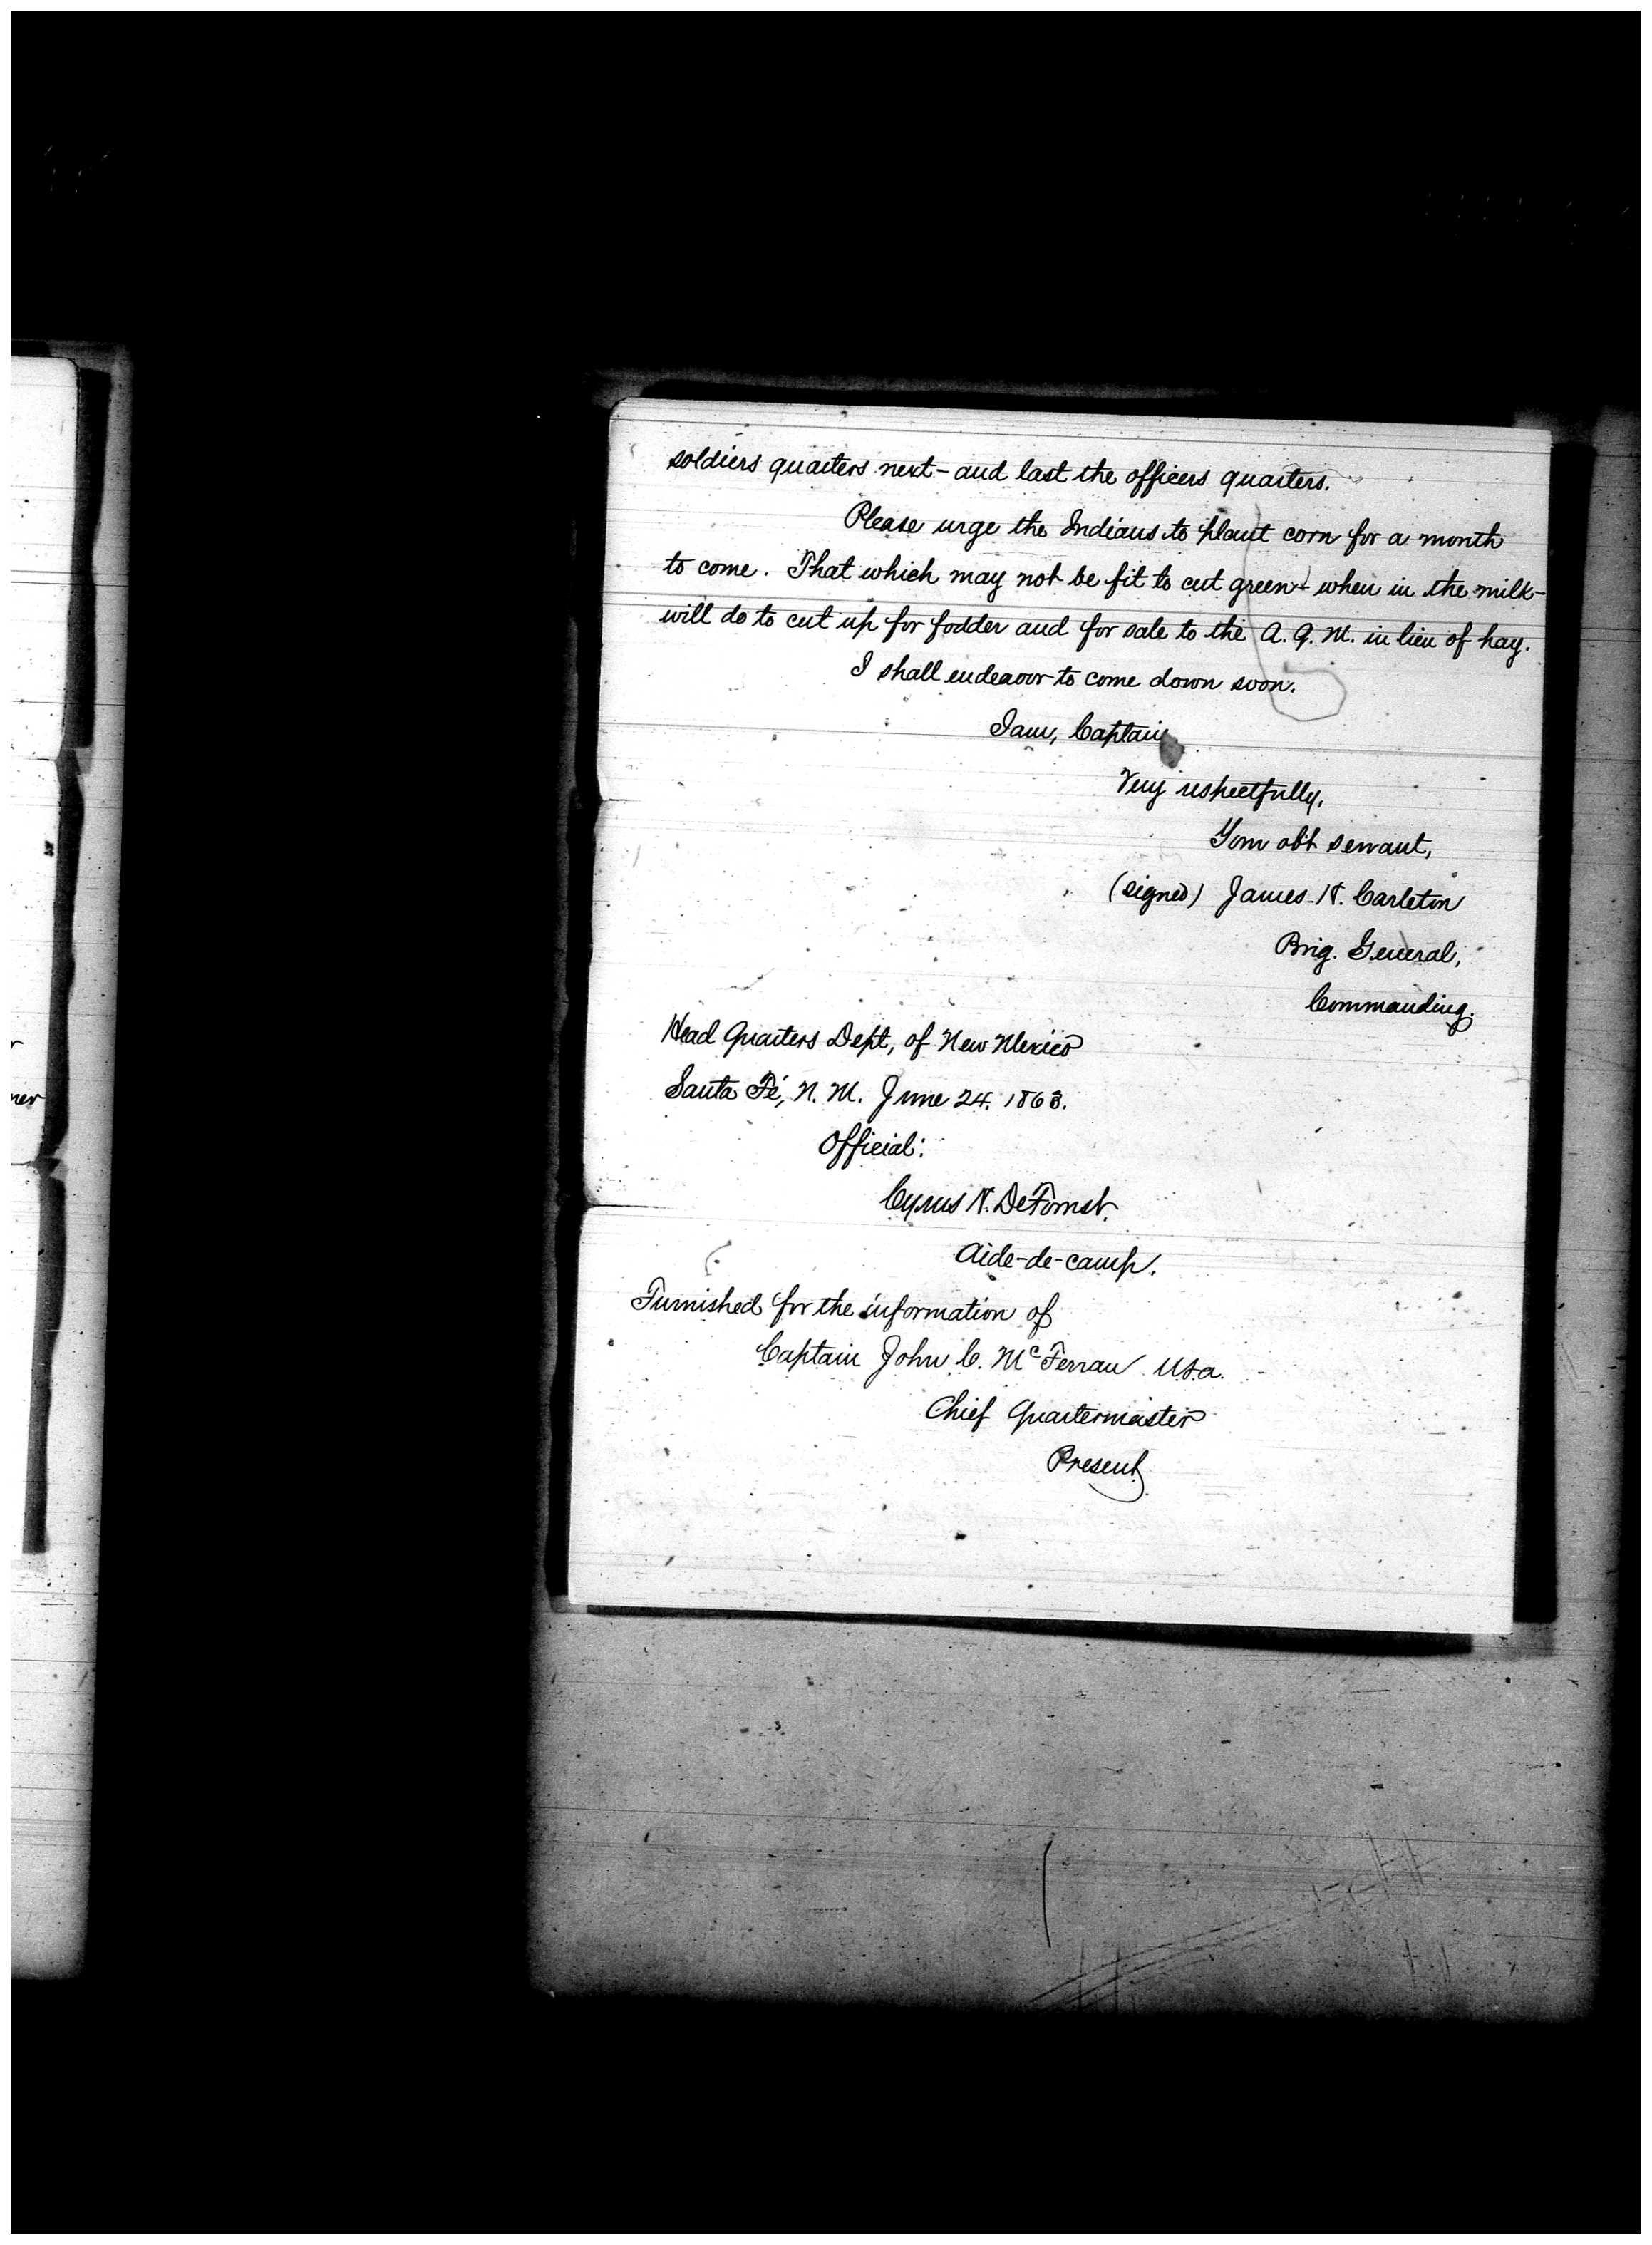 soldiers quarters next - and last the officers quarters.
Please urge the Indians to plant corn for a month
to come. That which may not be fit to cut green - when in the milk -
will do to cut up for fodder and for sale to the A. Q. M. in lieu of hay.
I shall endeavor to come down soon.
I am, Captain
Very respectfully,
Your obt servant,
(signed) James H. Carleton
Brig. General,
Commanding.
Head Quarters Dept, of New Mexico
Santa Fé, N. M. June 24, 1863.
Official:
Cyrus H. DeForrest.
Aide-de-camp.
Furnished for the information of
Captain John C. McFerran U.S.A.
Chief Quartermaster
Present